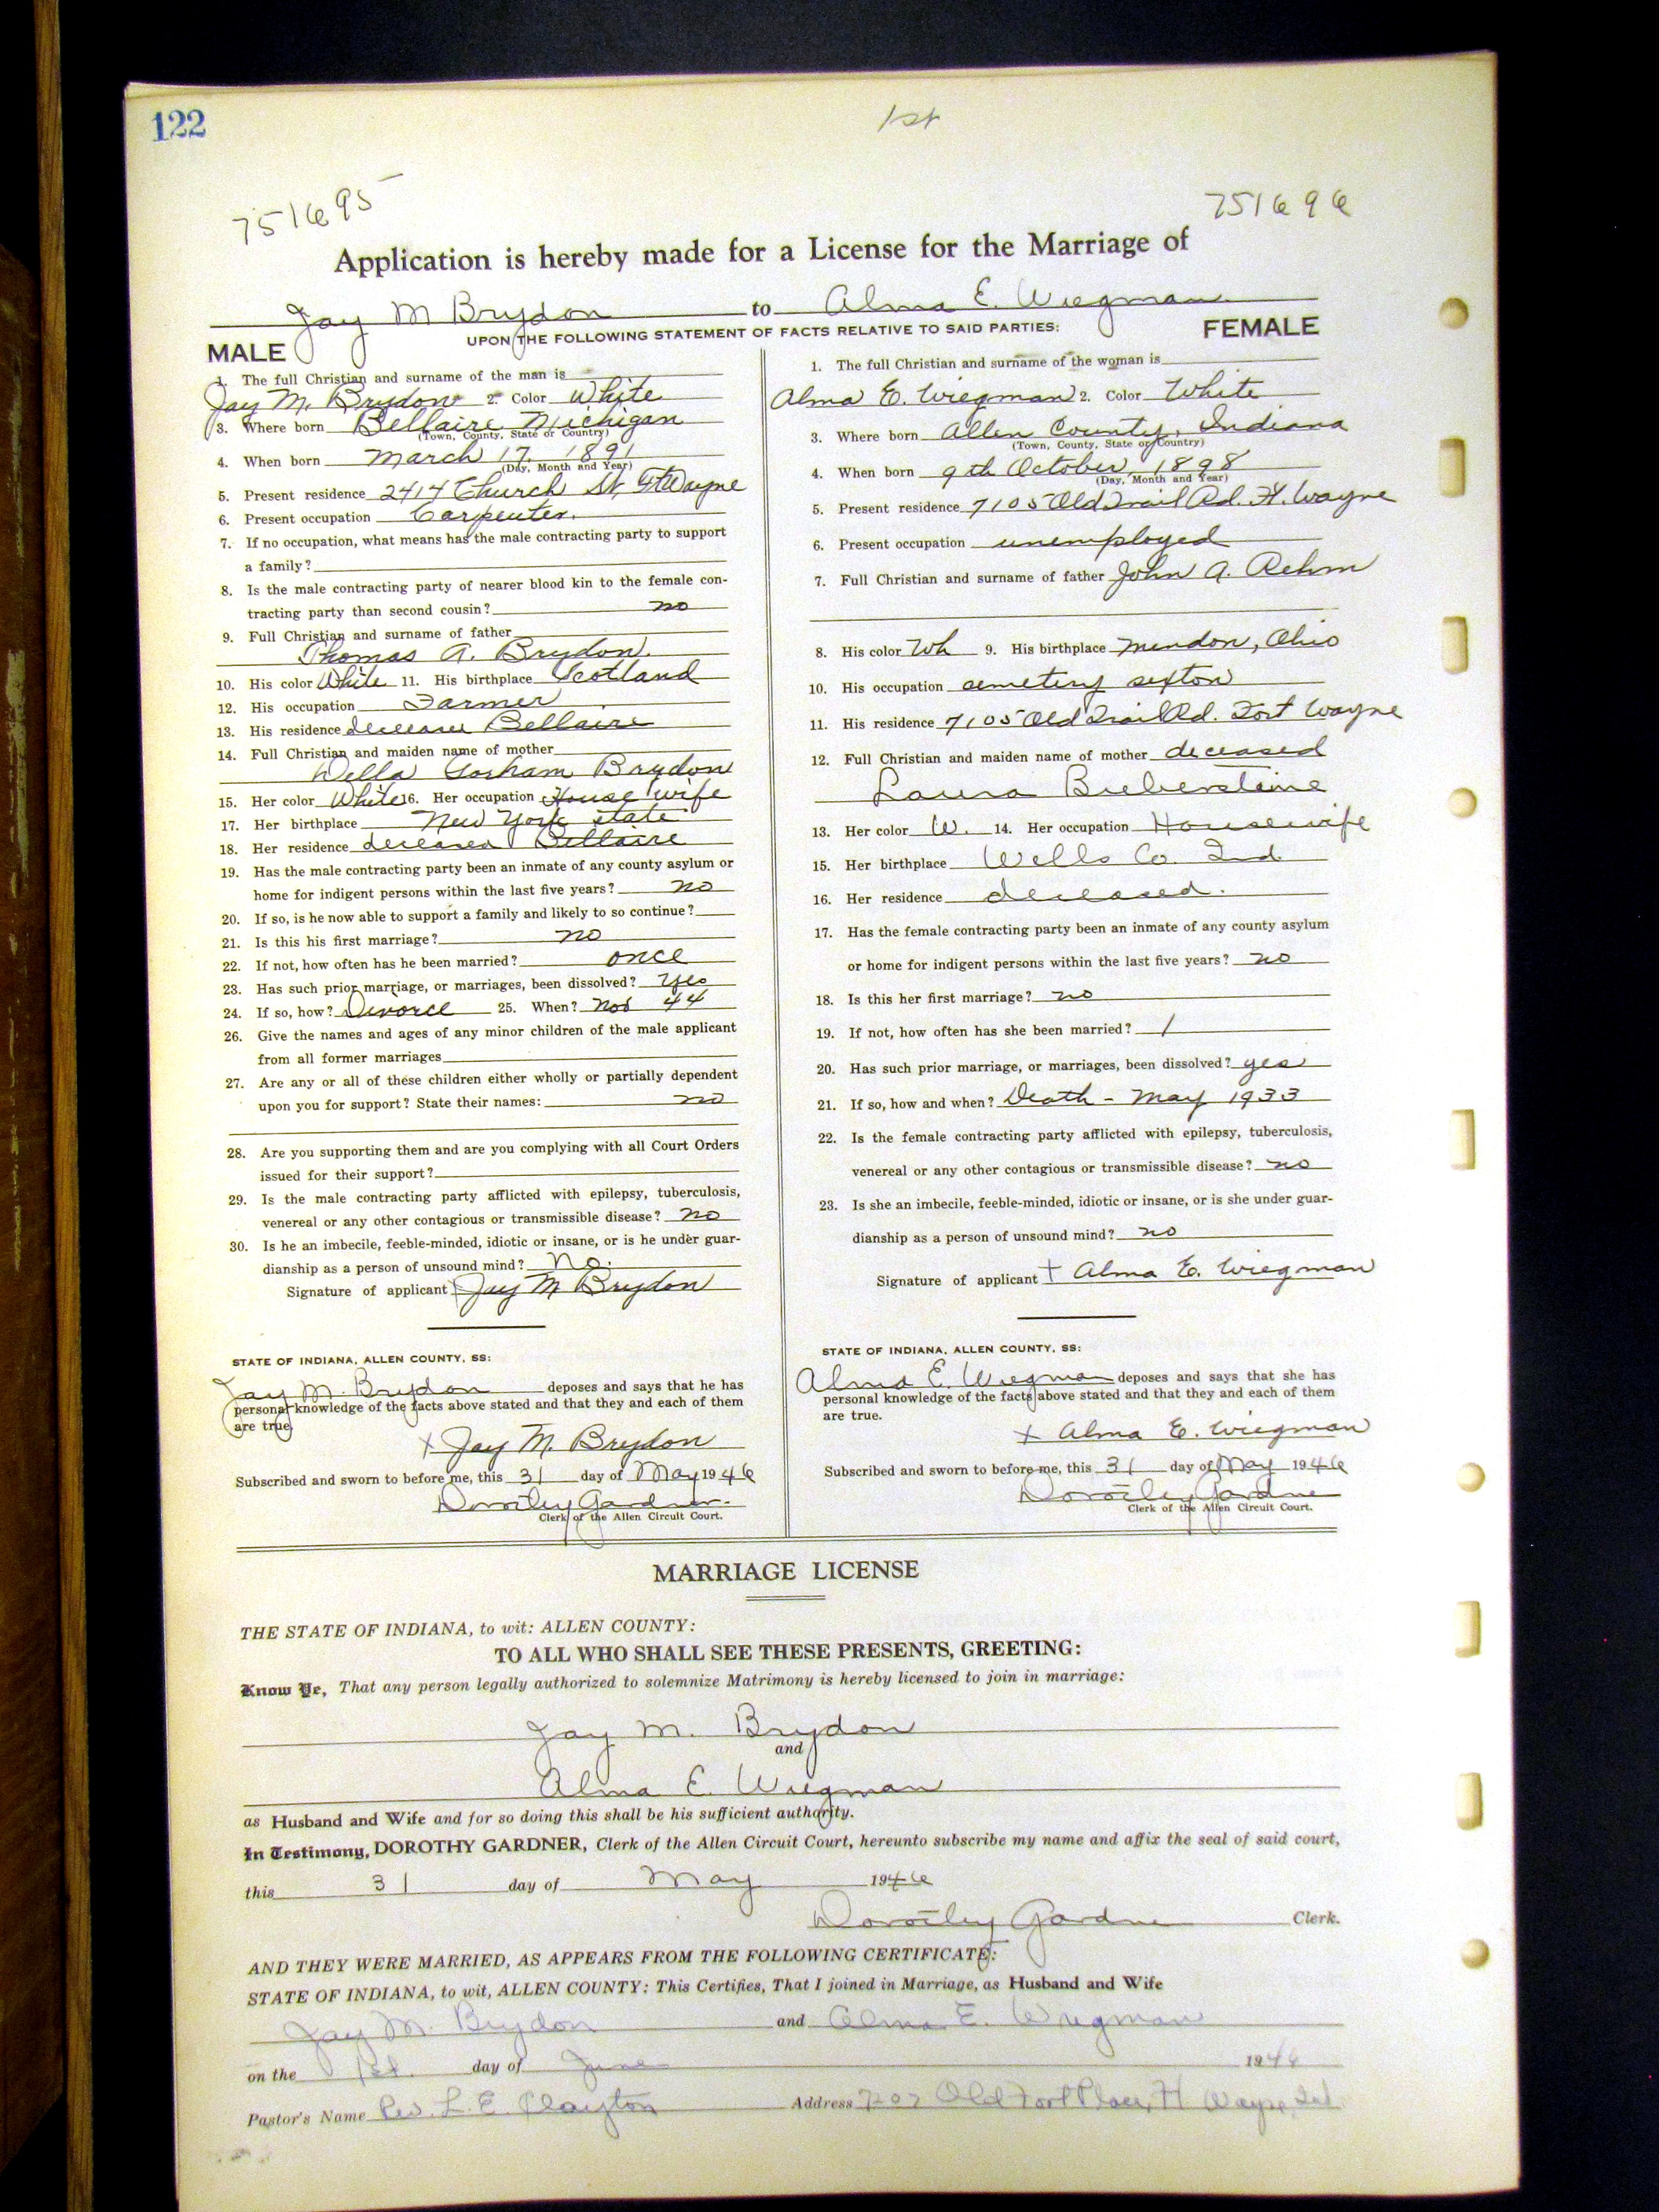 122
1st
751695
751696
Application is hereby made for a License for the Marriage of
Jay M Brydon to Alma E. Wiegman
UPON THE FOLLOWING STATEMENT OF FACTS RELATIVE TO SAID PARTIES:
MALE
1. The full Christian and surname of the man is
Jay M. Brydon 2. Color White
3. Where born Bellaire Michigan
(Town, County, State or Country)
4. When born March 17, 1891
(Day, Month and Year)
5. Present residence 2414 Church St, Ft Wayne
6. Present occupation Carpenter.
7. If no occupation, what means has the male contracting party to support
a family?
8. Is the male contracting party of nearer blood kin to the female con-
tracting party than second cousin? no
9. Full Christian and surname of father
Thomas A. Brydon.
10. His color White 11. His birthplace Scotland
12. His occupation Farmer
13. His residence Bellaire
14. Full Christian and maiden name of mother
Gorham Brydon
15. Her color White 16. Her occupation House wife
17. Her birthplace New York state
18. Her residence deceased Bellaire
19. Has the male contracting party been an inmate of any county asylum or
home for indigent persons within the last five years? no
20. If so, is he now able to support a family and likely to so continue?
21. Is this his first marriage? no
22. If not, how often has he been married? once
23. Has such prior marriage, or marriages, been dissolved? Yes
24. If so, how? Divorce 25. When? Nov 44
26. Give the names and ages of any minor children of the male applicant
from all former marriages
27. Are any or all of these children either wholly or partially dependent
upon you for support? State their names: no
28. Are you supporting them and are you complying with all Court Orders
issued for their support?
29. Is the male contracting party afflicted with epilepsy, tuberculosis,
venereal or any other contagious or transmissible disease? no
30. Is he an imbecile, feeble-minded, idiotic or insane, or is he under guar-
dianship as a person of unsound mind? No.
Signature of applicant Jay M Brydon
STATE OF INDIANA, ALLEN COUNTY, SS:
Jay M. Brydon deposes and says that he has
personal knowledge of the facts above stated and that they and each of them
are true.
x Jay M. Brydon
Subscribed and sworn to before me, this 31 day of May 1946
Dorothy Gardner
Clerk of the Allen Circuit Court.
FEMALE
1. The full Christian and surname of the woman is
Alma E. Wiegman 2. Color White
3. Where born Allen County, Indiana
(Town, County, State or Country)
4. When born 9th October, 1898
(Day, Month and Year)
5. Present residence 7105 Old Trail Rd. Ft. Wayne
6. Present occupation unemployed
7. Full Christian and surname of father John A. Rehm
8. His color Wh 9. His birthplace Mendon, Ohio
10. His occupation cemetery sexton
11. His residence 7105 Old Trail Rd. Fort Wayne
12. Full Christian and maiden name of mother deceased
Laura Bieberstine
13. Her color W. 14. Her occupation Housewife
15. Her birthplace Wells Co. Ind.
16. Her residence deceased.
17. Has the female contracting party been an inmate of any county asylum
or home for indigent persons within the last five years? no
18. Is this her first marriage? no
19. If not, how often has she been married? 1
20. Has such prior marriage, or marriages, been dissolved? yes
21. If so, how and when? Death - May 1933
22. Is the female contracting party afflicted with epilepsy, tuberculosis,
venereal or any other contagious or transmissible disease? no
23. Is she an imbecile, feeble-minded, idiotic or insane, or is she under guar-
dianship as a person of unsound mind? no
Signature of applicant + Alma E. Wiegman
STATE OF INDIANA, ALLEN COUNTY, SS:
Alma E. Wiegman deposes and says that she has
personal knowledge of the facts above stated and that they and each of them
are true.
x Alma E. Wiegman
Subscribed and sworn to before me, this 31 day of May 1946
Dorothy Gardner
Clerk of the Allen Circuit Court.
MARRIAGE LICENSE
THE STATE OF INDIANA, to wit: ALLEN COUNTY:
TO ALL WHO SHALL SEE THESE PRESENTS, GREETING:
Know Ye, That any person legally authorized to solemnize Matrimony is hereby licensed to join in marriage:
Jay M. Brydon
and
Alma E. Wiegman
as Husband and Wife and for so doing this shall be his sufficient authority.
In Testimony, DOROTHY GARDNER, Clerk of the Allen Circuit Court, hereunto subscribe my name and affix the seal of said court,
this 31 day of May 1946
Dorothy Gardner Clerk.
AND THEY WERE MARRIED, AS APPEARS FROM THE FOLLOWING CERTIFICATE:
STATE OF INDIANA, to wit, ALLEN COUNTY: This Certifies, That I joined in Marriage, as Husband and Wife
Jay M. Brydon and Alma E. Wiegman
on the 1st. day of June 1946
Pastor's Name Rev. L. E. Clayton Address Old Fort Place, Ft Wayne, Ind.